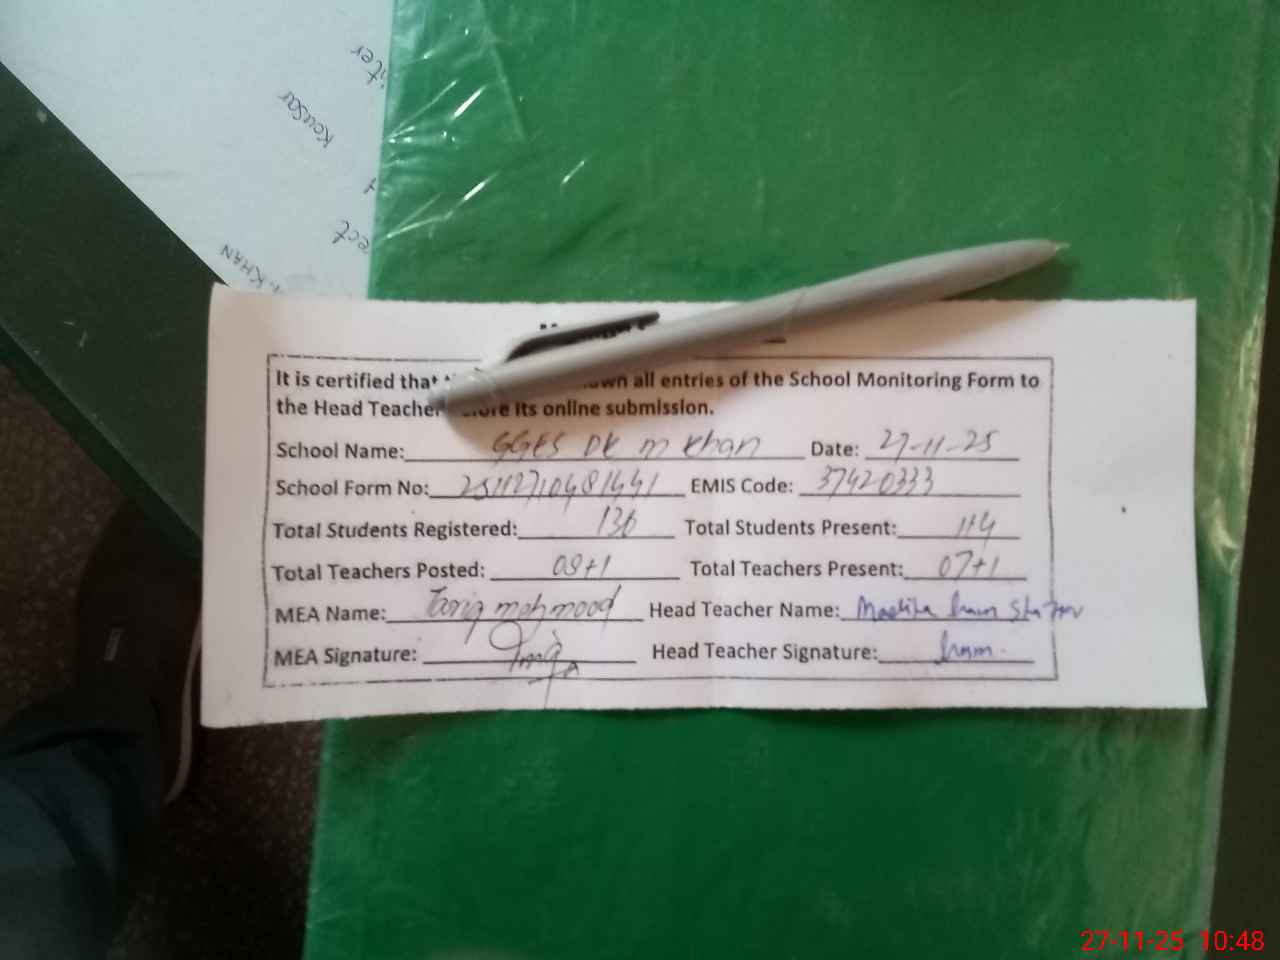 Kousar
KHAN
It is certified that own all entries of the School Monitoring Form to
the Head Teacher before its online submission.
School Name: GGES DK M Khan Date: 27-11-25
School Form No: EMIS Code: 37420333
Total Students Registered: 136 Total Students Present: 114
Total Teachers Posted: 08+1 Total Teachers Present: 07+1
MEA Name: Tariq mehmood Head Teacher Name:
MEA Signature: Head Teacher Signature:
27-11-25 10:48